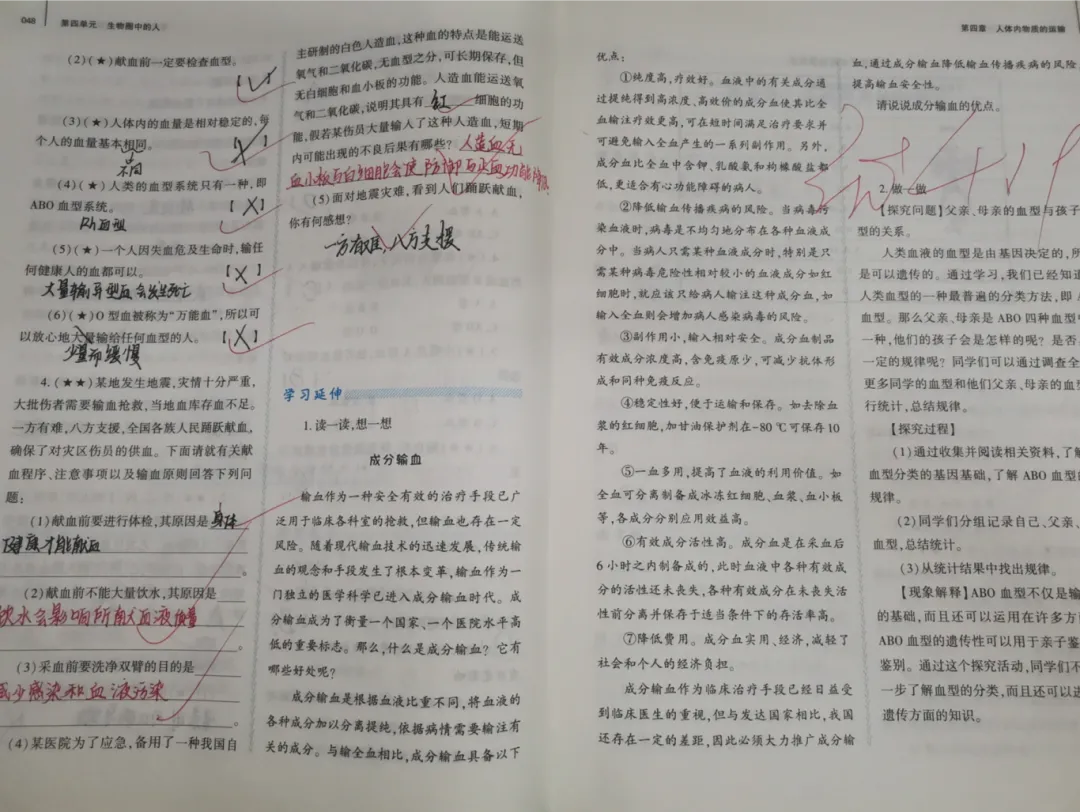 048 第四单元 生物圈中的人
(2)(★)献血前一定要检查血型。
【√】
(3)(★)人体内的血量是相对稳定的,每
个人的血量基本相同。 【X】
不同
(4)(★)人类的血型系统只有一种,即
ABO 血型系统。 【X】
Rh血型
(5)(★)一个人因失血危及生命时,输任
何健康人的血都可以。 【X】
大量输异型血会发生死亡
(6)(★)O 型血被称为“万能血”,所以可
以放心地大量输给任何血型的人。 【X】
少量而缓慢
4.(★★)某地发生地震,灾情十分严重,
大批伤者需要输血抢救,当地血库存血不足。
一方有难,八方支援,全国各族人民踊跃献血,
确保了对灾区伤员的供血。下面请就有关献
血程序、注意事项以及输血原则回答下列问
题:
(1)献血前要进行体检,其原因是 身体
健康才能献血
。
(2)献血前不能大量饮水,其原因是
饮水会影响所献血液质量
。
(3)采血前要洗净双臂的目的是
减少感染和血液污染
。
(4)某医院为了应急,备用了一种我国自
主研制的白色人造血,这种血的特点是能运送
氧气和二氧化碳,无血型之分,可长期保存,但
无白细胞和血小板的功能。人造血能运送氧
气和二氧化碳,说明其具有 红 细胞的功
能,假若某伤员大量输入了这种人造血,短期
内可能出现的不良后果有哪些? 人造血无
血小板与白细胞会使防御与止血功能降低。
(5)面对地震灾难,看到人们踊跃献血,
你有何感想?
一方有难,八方支援
学习延伸
1. 读一读,想一想
成分输血
输血作为一种安全有效的治疗手段已广
泛用于临床各科室的抢救,但输血也存在一定
风险。随着现代输血技术的迅速发展,传统输
血的观念和手段发生了根本变革,输血作为一
门独立的医学科学已进入成分输血时代。成
分输血成为了衡量一个国家、一个医院水平高
低的重要标志。那么,什么是成分输血?它有
哪些好处呢?
成分输血是根据血液比重不同,将血液的
各种成分加以分离提纯,依据病情需要输注有
关的成分。与输全血相比,成分输血具备以下
第四章 人体内物质的运输
优点:
①纯度高,疗效好。血液中的有关成分通
过提纯得到高浓度、高效价的成分血使其比全
血输注疗效更高,可在短时间满足治疗要求并
可避免输入全血产生的一系列副作用。另外,
成分血比全血中含钾、乳酸氨和枸橼酸盐都
低,更适合有心功能障碍的病人。
②降低输血传播疾病的风险。当病毒污
染血液时,病毒是不均匀地分布在各种血液成
分中。当病人只需某种血液成分时,特别是只
需某种病毒危险性相对较小的血液成分如红
细胞时,就应该只给病人输注这种成分血,如
输入全血则会增加病人感染病毒的风险。
③副作用小,输入相对安全。成分血制品
有效成分浓度高,含免疫原少,可减少抗体形
成和同种免疫反应。
④稳定性好,便于运输和保存。如去除血
浆的红细胞,加甘油保护剂在-80 ℃可保存10
年。
⑤一血多用,提高了血液的利用价值。如
全血可分离制备成冰冻红细胞、血浆、血小板
等,各成分分别应用效益高。
⑥有效成分活性高。成分血是在采血后
6 小时之内制备成的,此时血液中各种有效成
分的活性还未丧失,各种有效成分在未丧失活
性前分离并保存于适当条件下的存活率高。
⑦降低费用。成分血实用、经济,减轻了
社会和个人的经济负担。
成分输血作为临床治疗手段已经日益受
到临床医生的重视,但与发达国家相比,我国
还存在一定的差距,因此必须大力推广成分输
血,通过成分输血降低输血传播疾病的风险,
提高输血安全性。
请说说成分输血的优点。
2. 做一做
【探究问题】父亲、母亲的血型与孩子
型的关系。
人类血液的血型是由基因决定的,所
是可以遗传的。通过学习,我们已经知道
人类血型的一种最普遍的分类方法,即 A
血型。那么父亲、母亲是 ABO 四种血型中
一种,他们的孩子会是怎样的呢?是否
一定的规律呢?同学们可以通过调查全
更多同学的血型和他们父亲、母亲的血
行统计,总结规律。
【探究过程】
(1)通过收集并阅读相关资料,了解
血型分类的基因基础,了解 ABO 血型
规律。
(2)同学们分组记录自己、父亲、
血型,总结统计。
(3)从统计结果中找出规律。
【现象解释】ABO 血型不仅是输
的基础,而且还可以运用在许多方
ABO 血型的遗传性可以用于亲子鉴
鉴别。通过这个探究活动,同学们不
一步了解血型的分类,而且还可以进
遗传方面的知识。